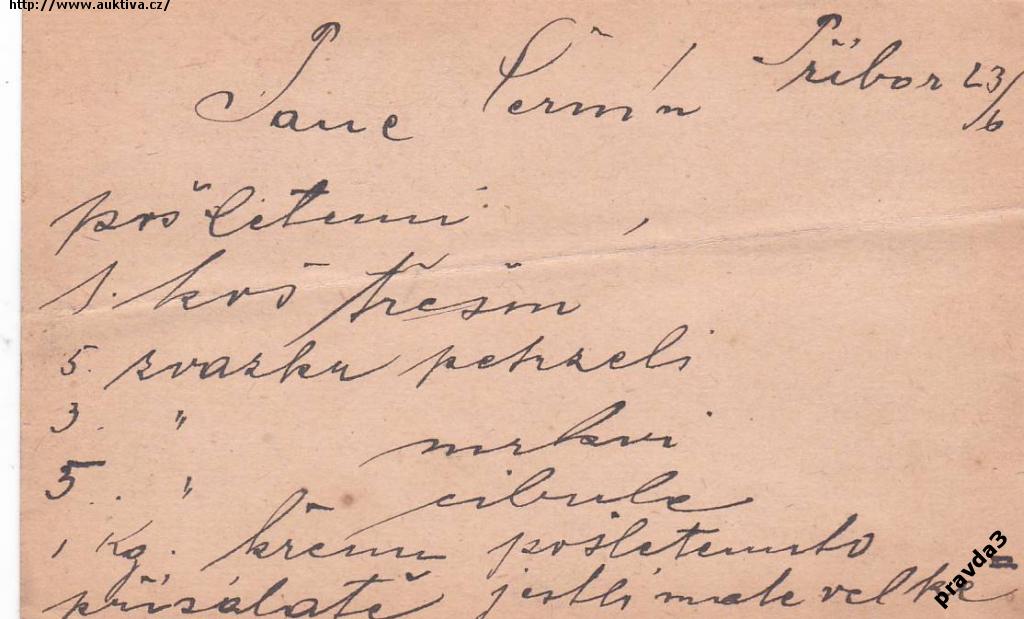 http://www.auktiva.cz/
Příbor 23/6
Pane Čermín
pošletemi
1. koš třešin
5. zvazku petrzeli
3. " mrkvi
5. " cibule
1 Kg. křenu pošletemito
přisálatě jestli mate velke
pravda3